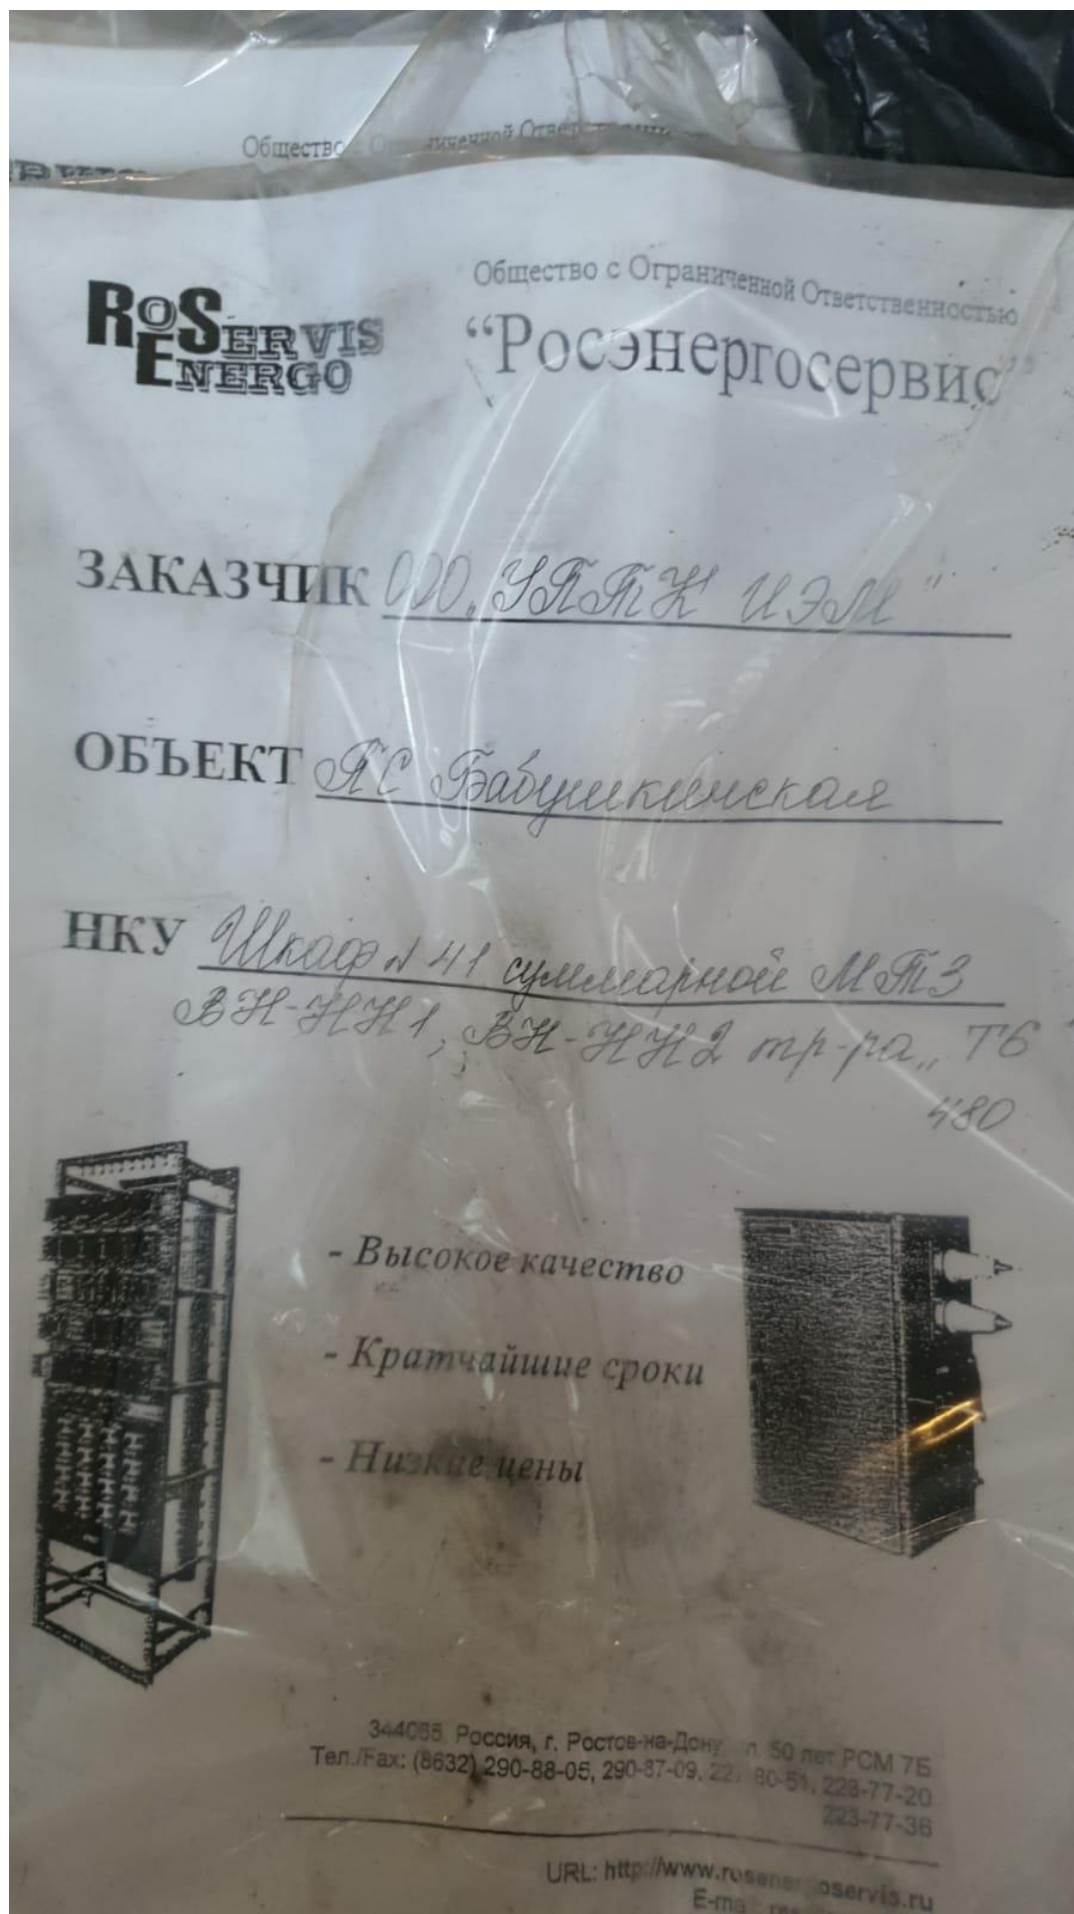 Общество с Ограниченной
ROSERVIS
ENERGO
Общество с Ограниченной Ответственностью
“Росэнергосервис”
ЗАКАЗЧИК ООО „УПТК ИЭМ"
ОБЪЕКТ ПС Бабушкинская
НКУ Шкаф N 41 суммарной МТЗ
ВН-НН1, ВН-НН2 тр-ра „Т6"
480
- Высокое качество
- Кратчайшие сроки
- Низкие цены
Россия, г. Ростов-на-Дону 50 лет РСМ 7Б
Тел./Fax: (8632) 290-88-05, 290-87-09, 80-51, 223-77-20
223-77-36
URL: http://www.rosenergoservis.ru